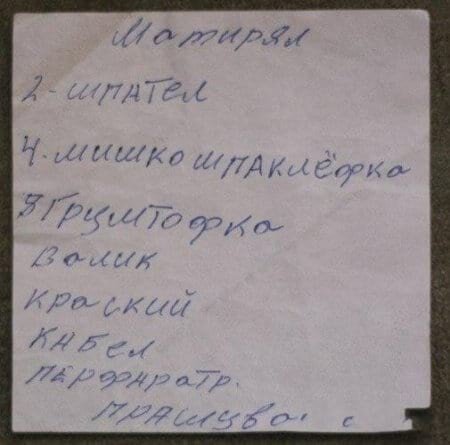 Матирял
2-шпател
4. мишко шпаклёфка
Грумтофка
валик
краский
кабел
перфаратр.